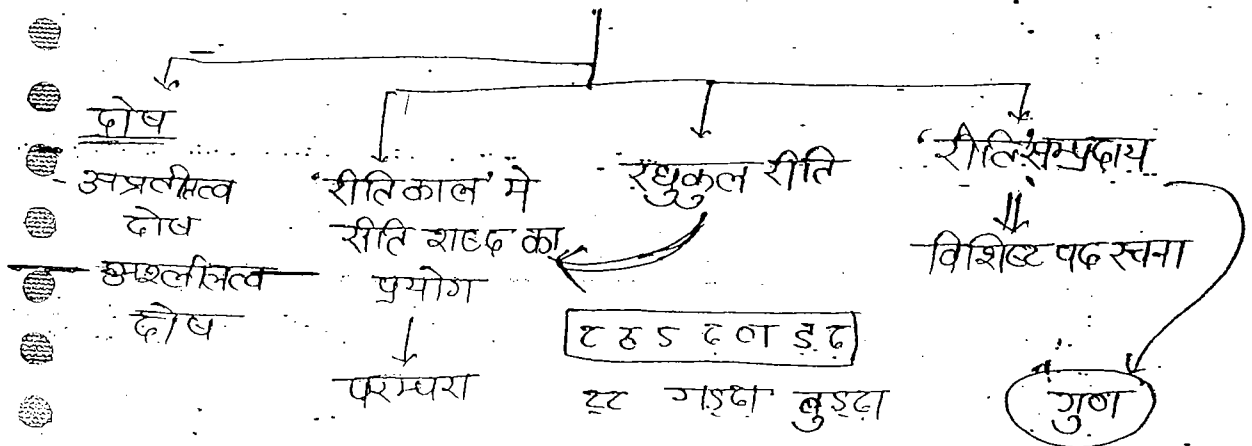 दोष
- अप्रतीतत्व
दोष
- अश्लीलत्व
दोष
'रीतिकाल' मे
रीति शब्द का
प्रयोग
परम्परा
रघुकुल रीति
ट ठ ड ढ ण ड़ ढ़
ट्ट गड्ढा बुड्ढा
'रीति सम्प्रदाय'
विशिष्ट पद रचना
गुण